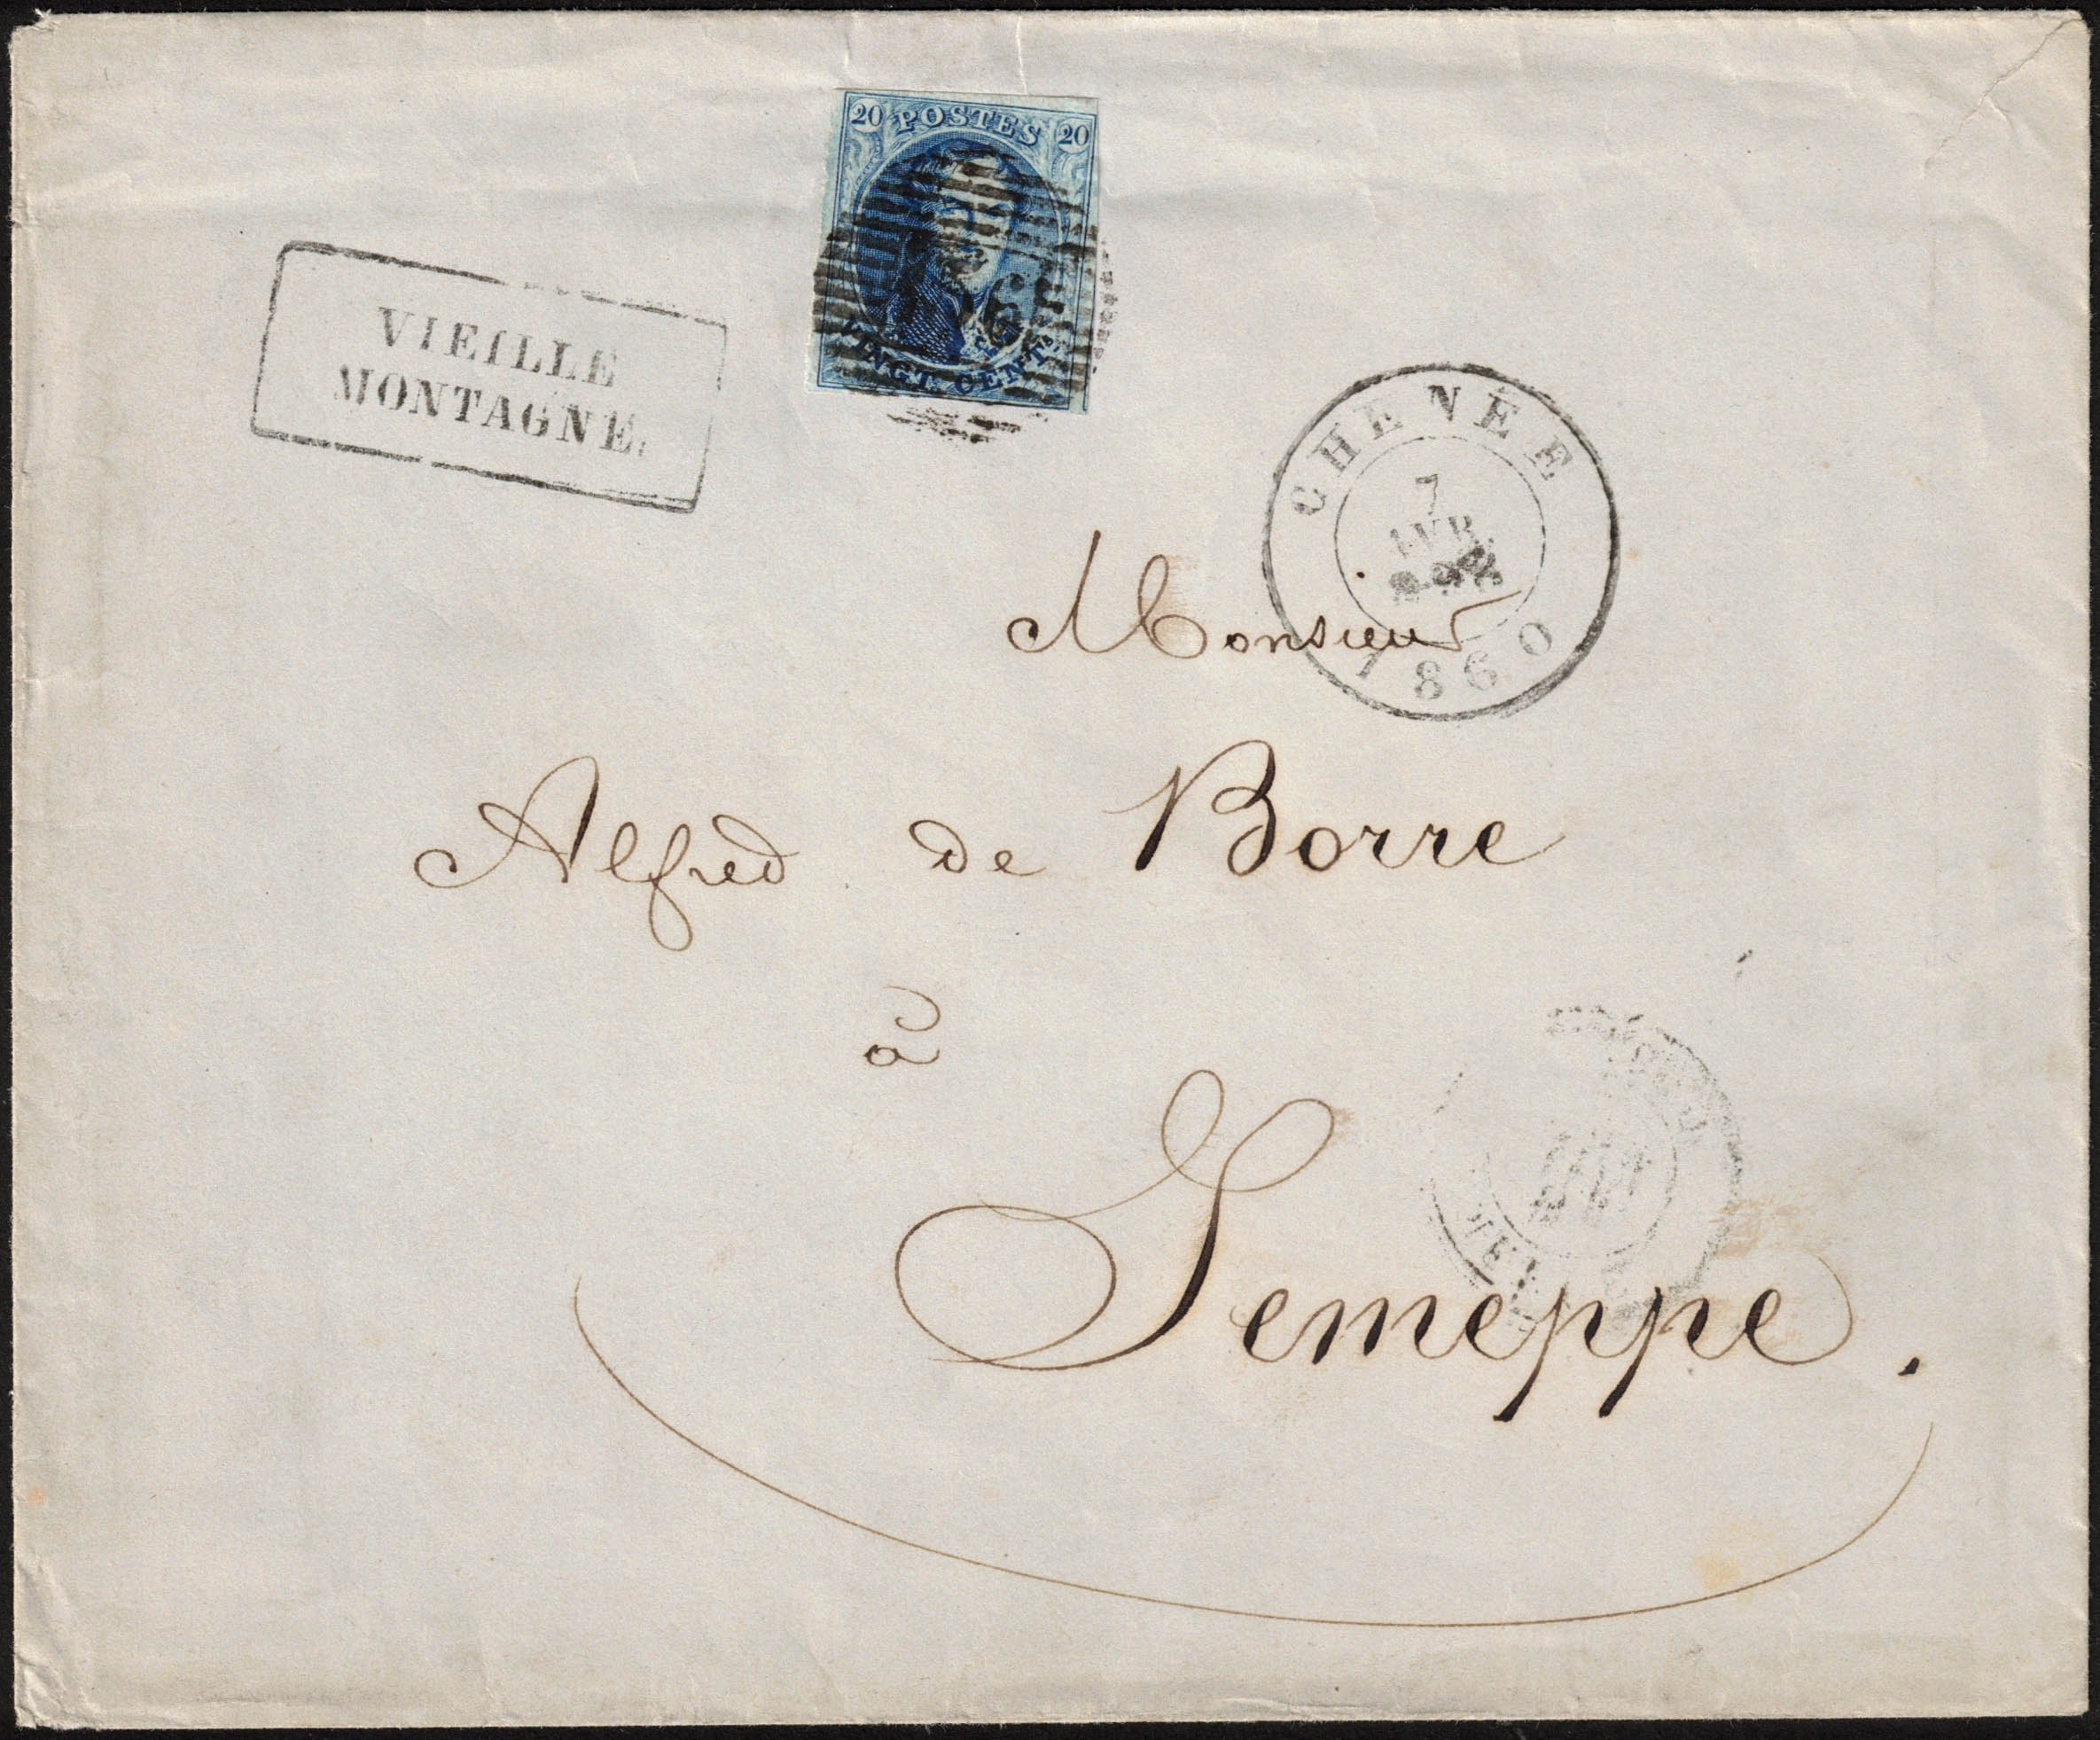 20 POSTES 20
VINGT CENTS
VIEILLE
MONTAGNE.
CHENÉE
7
AVR
1860
Monsieur
Alfred de Borre
à
Jemeppe.